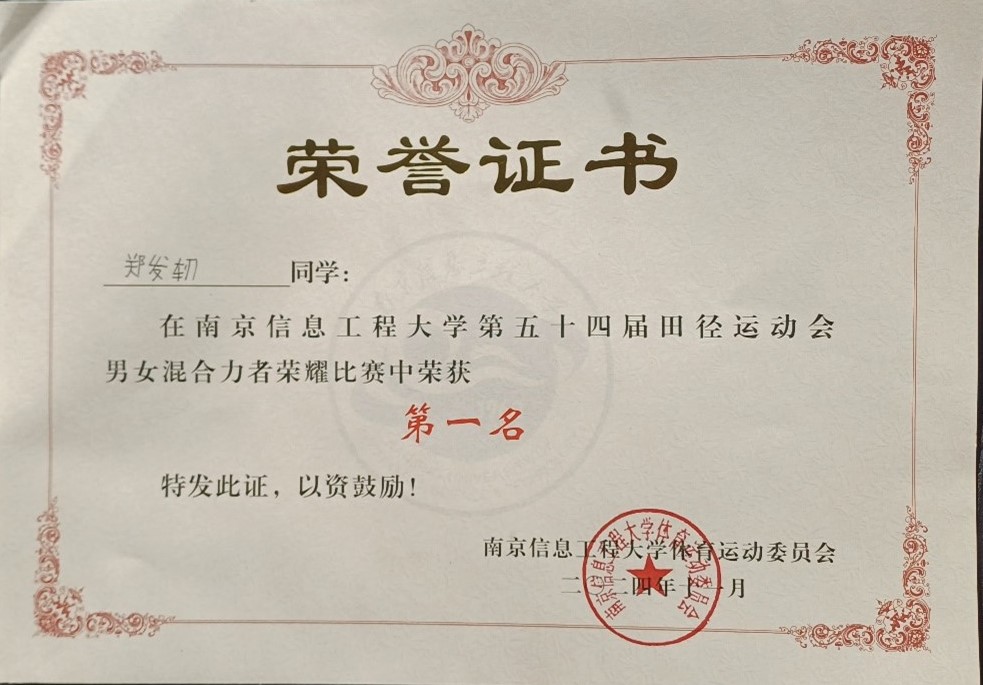 荣誉证书
郑发轫 同学：
在南京信息工程大学第五十四届田径运动会
男女混合力者荣耀比赛中荣获
第一名
特发此证，以资鼓励！
南京信息工程大学体育运动委员会
二〇二四年十一月
南京信息工程大学体育运动委员会